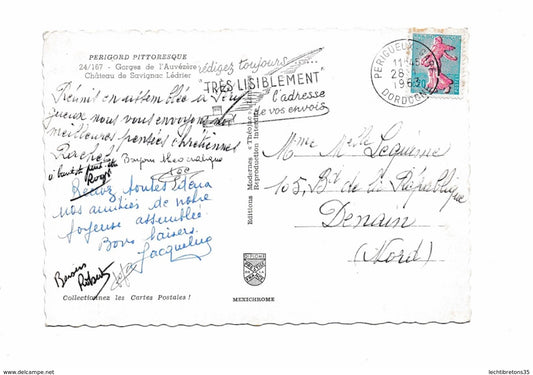 PERIGORD PITTORESQUE
24/167 - Gorges de l'Auvézère
Château de Savignac Lédrier
rédigez toujours
"TRÈS LISIBLEMENT"
l'adresse
de vos envois
PERIGUEUX GARE
11H45
28-
1960
DORDOGNE
Réunit en assemblée à
jeux nous vous envoyons nos
meilleures pensées chrétiennes
Rachel Bonjour
à bientôt peut-être
Roger
Recevez toutes deux
nos amitiés de notre
joyeuse assemblée
Bons baisers.
Jacqueline
Baisers
Robert
Mme Melle Lequime
105, Bd de la République
Denain
(Nord)
Editions Modernes « Théojac »
Reproduction interdite
Collectionnez les Cartes Postales !
MEXICHROME
www.delcampe.net
lechtibretons35